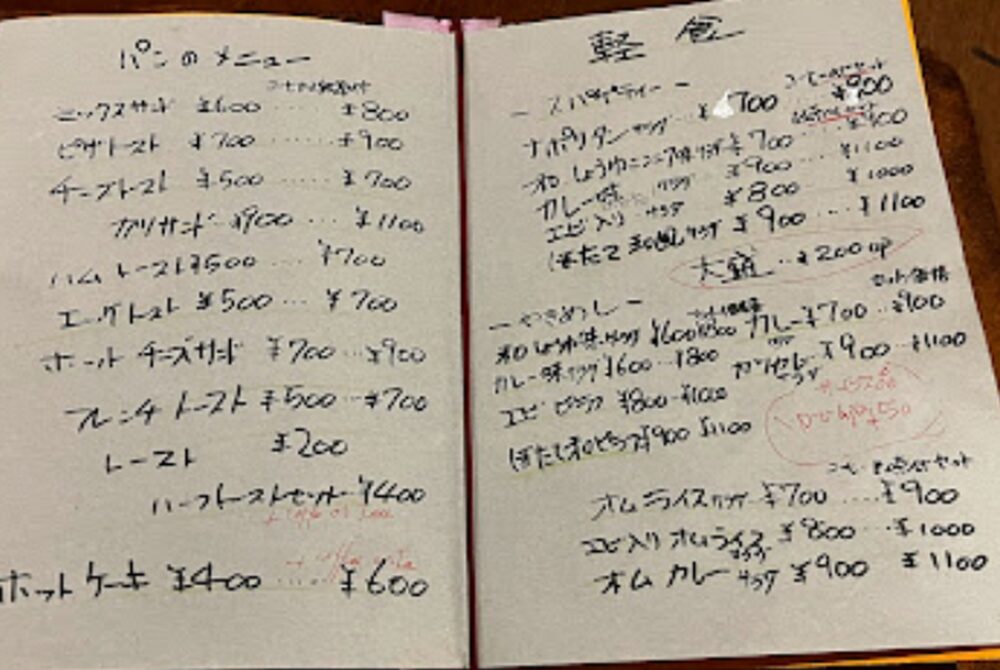 パンのメニュー
ミックスサンド ¥600 ‥‥ ¥800
ピザトースト ¥700 ‥‥ ¥900
チーズトースト ¥500 ‥‥ ¥700
カツサンド ¥900 ‥‥ ¥1100
ハムトースト ¥500 ‥‥ ¥700
エッグトスト ¥500 ‥‥ ¥700
ホットチーズサンド ¥700 ‥‥ ¥900
フレンチトースト ¥500 ‥‥ ¥700
トースト ¥200
ハーフトーストセット ¥400
ホットケーキ ¥400 ‥‥ ¥600
軽食
ースパゲティーー
ナポリタン サラダ ¥700 ¥900
和しょうゆニンニク味 サラダ ¥700 ¥900
カレー味 サラダ ¥900 ‥‥ ¥1100
エビ入り サラダ ¥800 ¥1000
ほたて和風 サラダ ¥900 ‥‥ ¥1100
大盛 ‥ ¥200up
ーやきめしー
セット価格
和しょうゆ味 サラダ ¥600 ¥800 カレー ¥700 ‥‥ ¥900
カレー味 サラダ ¥600 ‥‥ ¥800 カツカレー サラダ ¥900 ‥‥ ¥1100
エビピラフ ¥800 ‥ ¥1000
ほたて和ピラフ ¥900 ¥1100
オムライス サラダ ¥700 ‥‥ ¥900
エビ入りオムライス サラダ ¥800 ‥‥ ¥1000
オムカレー サラダ ¥900 ¥1100